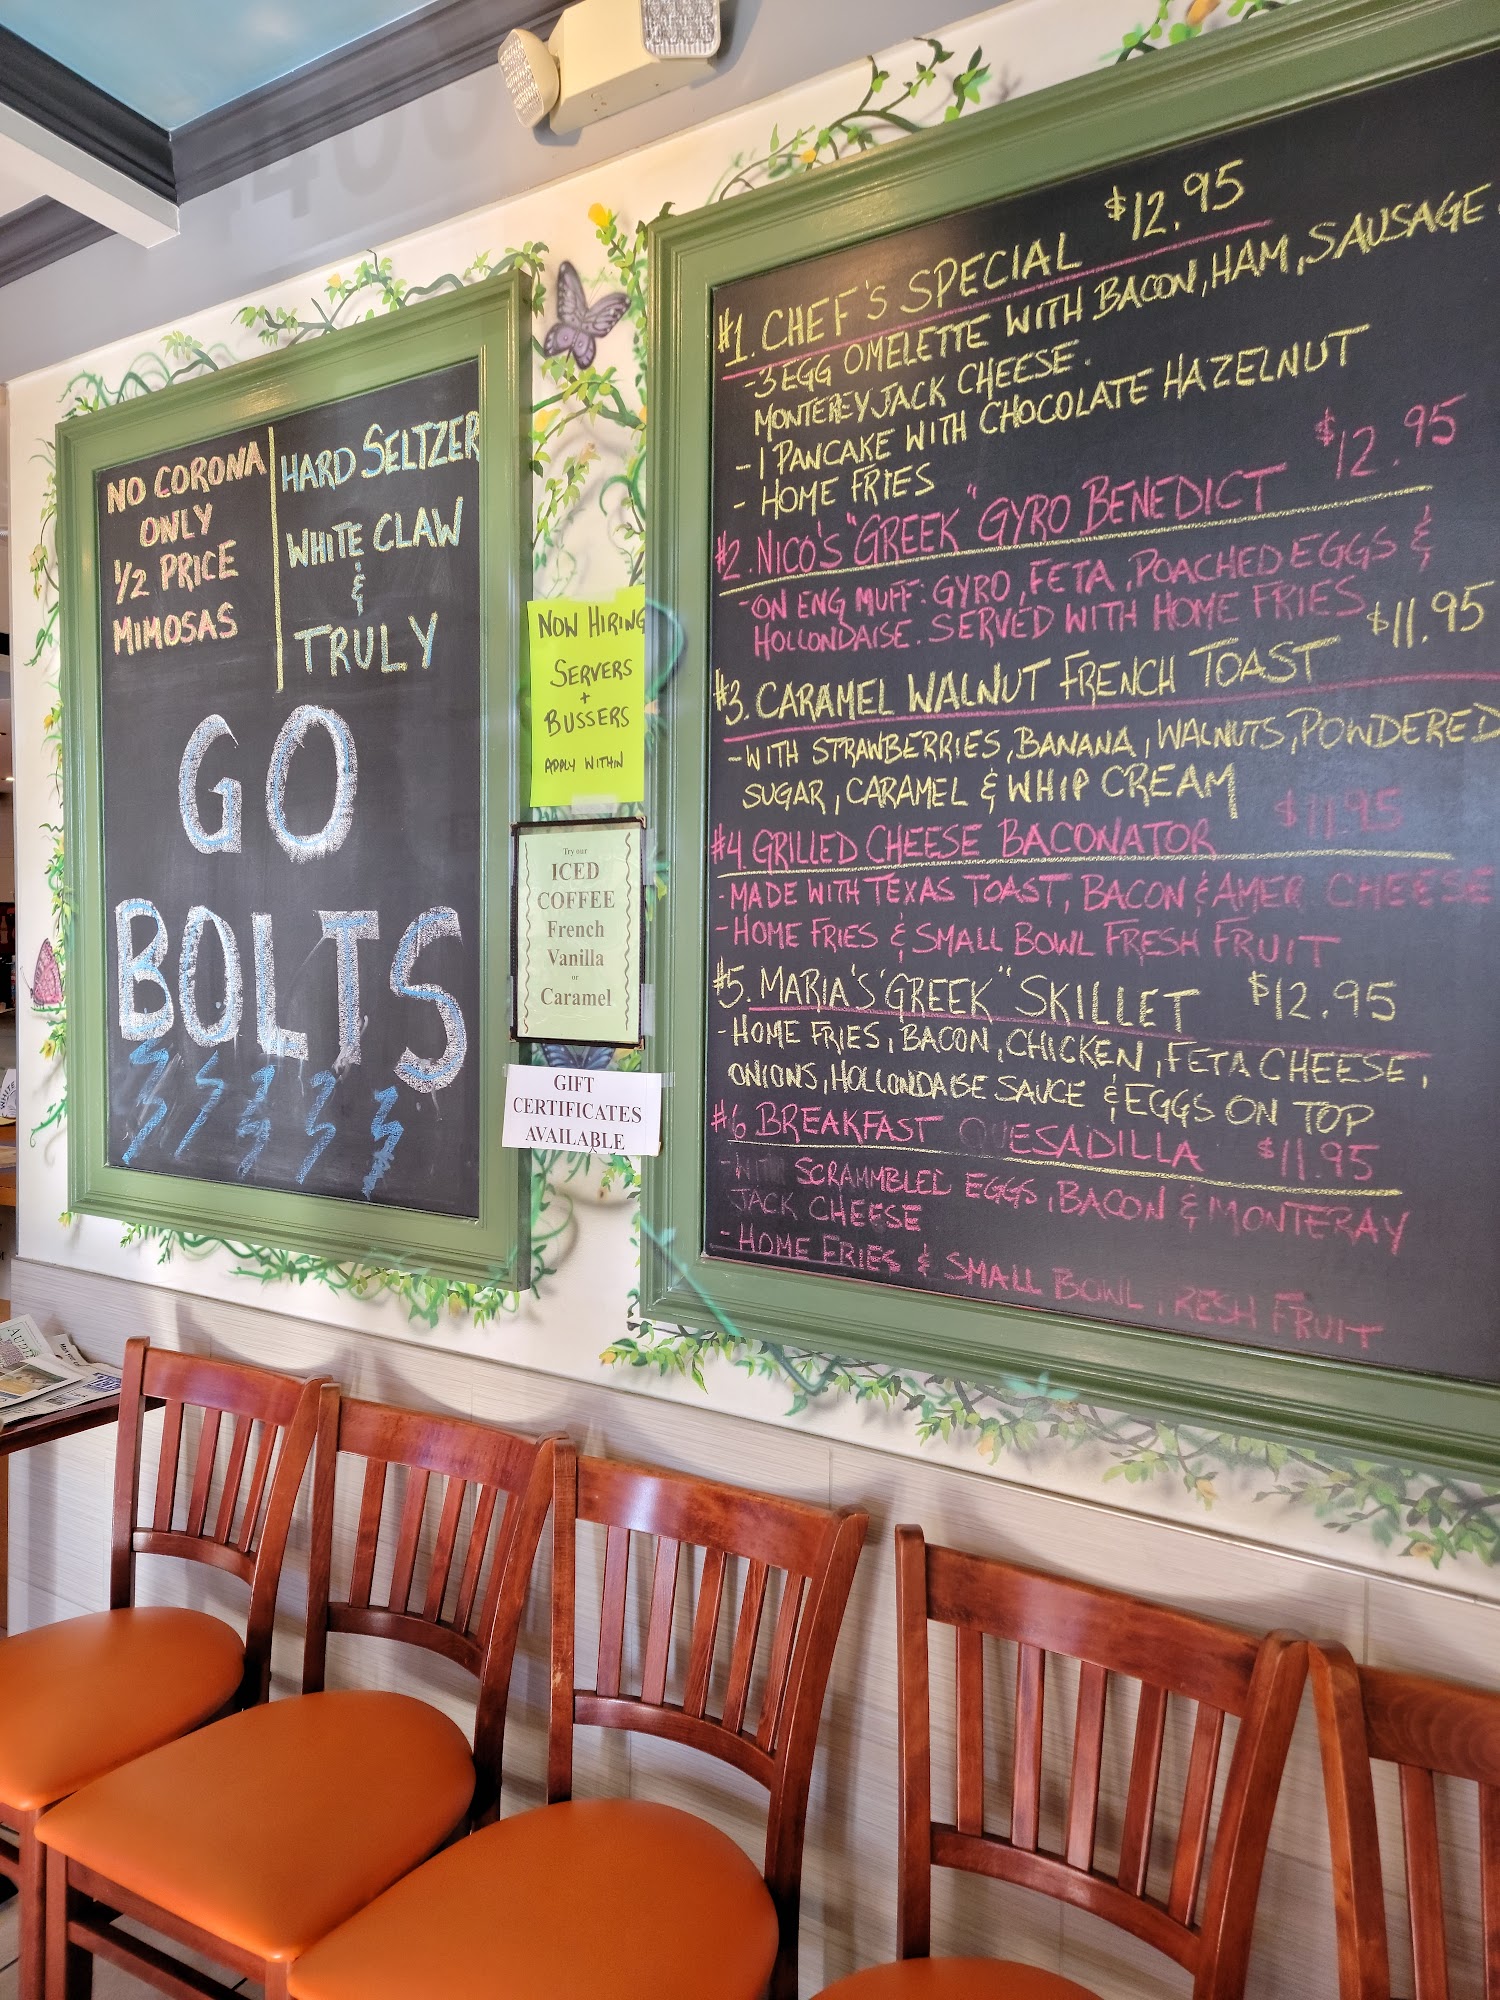 NO CORONA
ONLY
1/2 PRICE
MIMOSAS
HARD SELTZER
WHITE CLAW
&
TRULY
GO
BOLTS
NOW HIRING
SERVERS
+
BUSSERS
APPLY WITHIN
Try our
ICED
COFFEE
French
Vanilla
or
Caramel
GIFT
CERTIFICATES
AVAILABLE
#1. CHEF'S SPECIAL $12.95
-3 EGG OMELETTE WITH BACON, HAM, SAUSAGE &
MONTEREY JACK CHEESE.
- 1 PANCAKE WITH CHOCOLATE HAZELNUT
- HOME FRIES
#2. NICO'S "GREEK" GYRO BENEDICT $12.95
-ON ENG MUFF: GYRO, FETA, POACHED EGGS &
HOLLONDAISE. SERVED WITH HOME FRIES
#3. CARAMEL WALNUT FRENCH TOAST $11.95
-WITH STRAWBERRIES, BANANA, WALNUTS, POWDERED
SUGAR, CARAMEL & WHIP CREAM
#4. GRILLED CHEESE BACONATOR $11.95
-MADE WITH TEXAS TOAST, BACON & AMER CHEESE
-HOME FRIES & SMALL BOWL FRESH FRUIT
#5. MARIA'S "GREEK" SKILLET $12.95
-HOME FRIES, BACON, CHICKEN, FETA CHEESE,
ONIONS, HOLLONDAISE SAUCE & EGGS ON TOP
#6 BREAKFAST QUESADILLA $11.95
-WITH SCRAMMBLED EGGS, BACON & MONTERAY
JACK CHEESE
-HOME FRIES & SMALL BOWL FRESH FRUIT